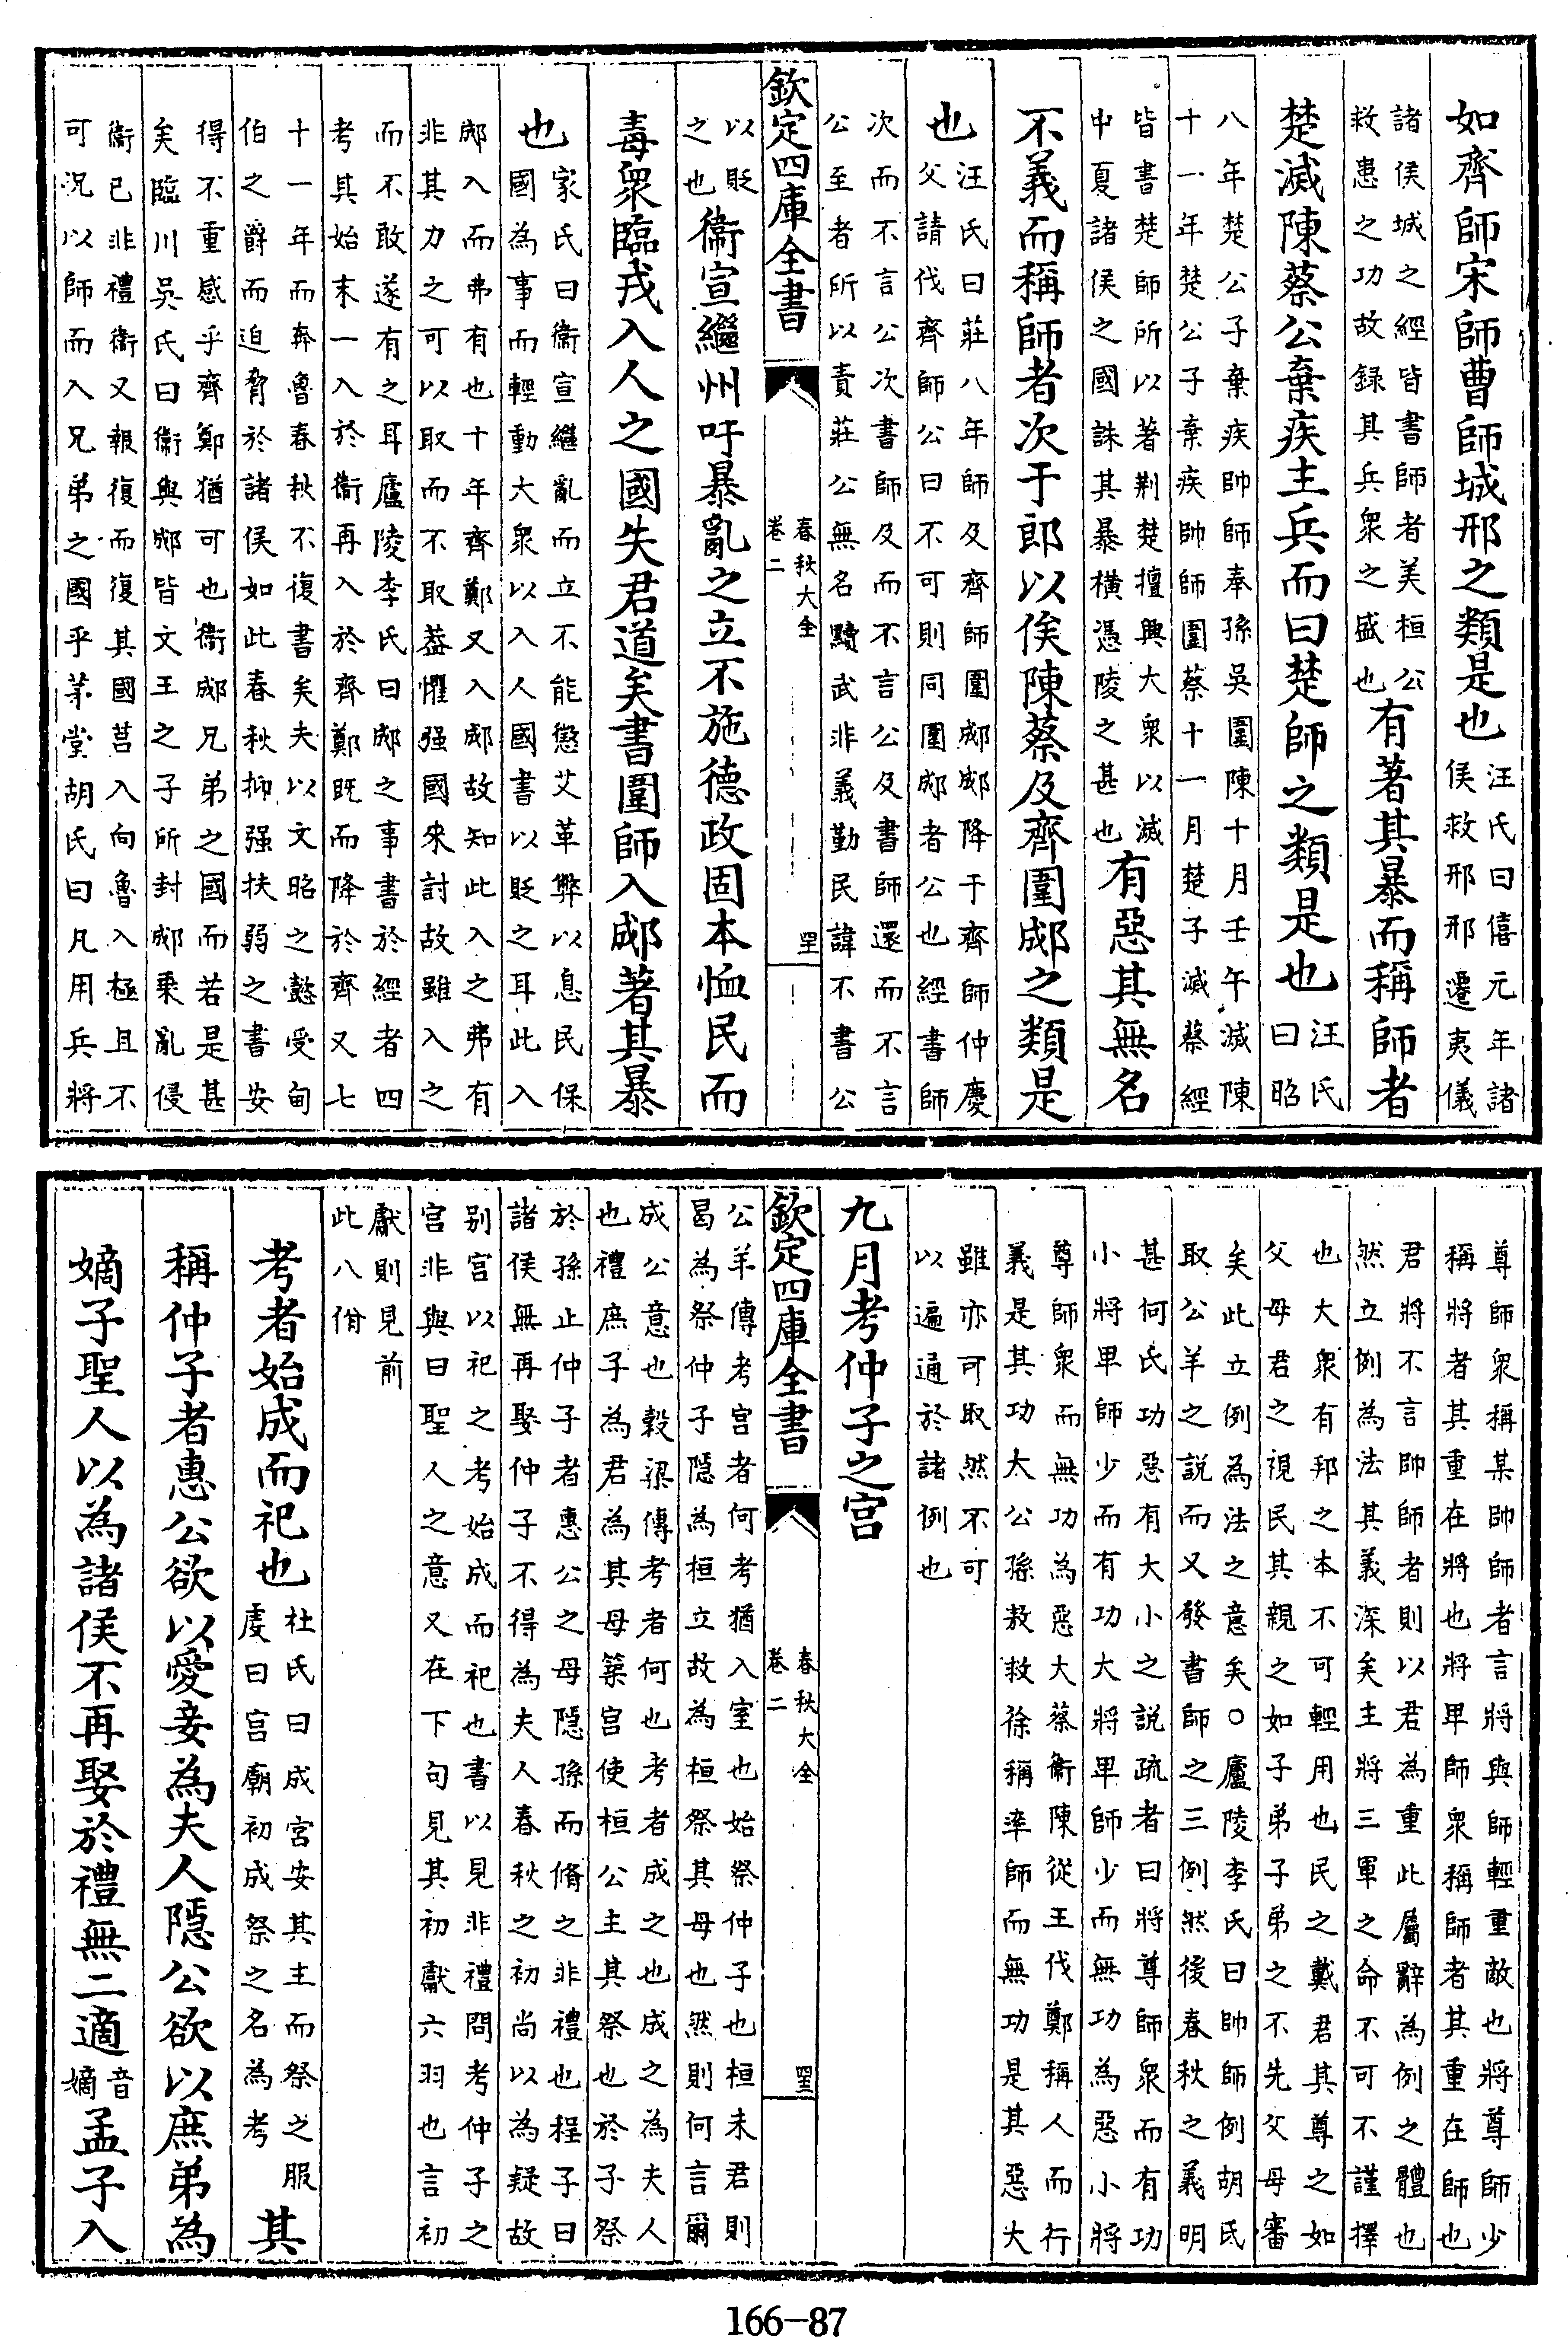 如齊師宋師曹師城邢之類是也汪氏曰僖元年諸侯救邢邢遷夷儀
諸侯城之經皆書師者美桓公救患之功故録其兵衆之盛也有著其暴而稱師者
楚滅陳蔡公棄疾主兵而曰楚師之類是也汪氏曰昭
八年楚公子棄疾帥師奉孫吳圍陳十月壬午滅陳十一年楚公子棄疾帥師圍蔡十一月楚子滅蔡經
皆書楚師所以著荆楚擅興大衆以滅中夏諸侯之國誅其暴横憑陵之甚也有惡其無名
不義而稱師者次于郎以俟陳蔡及齊圍郕之類是
也汪氏曰莊八年師及齊師圍郕郕降于齊師仲慶父請伐齊師公曰不可則同圍郕者公也經書師
次而不言公次書師及而不言公及書師還而不言公至者所以責莊公無名黷武非義勤民諱不書公
欽定四庫全書
春秋大全
卷二
以貶之也衞宣繼州吁暴亂之立不施德政固本恤民而
毒衆臨戎入人之國失君道矣書圍師入郕著其暴
也家氏曰衞宣繼亂而立不能懲艾革弊以息民保國為事而輕動大衆以入人國書以貶之耳此入
郕入而弗有也十年齊鄭又入郕故知此入之弗有非其力之可以取而不取葢懼强國來討故雖入之
而不敢遂有之耳廬陵李氏曰郕之事書於經者四考其始末一入於衞再入於齊鄭既而降於齊又七
十一年而奔魯春秋不復書矣夫以文昭之懿受甸伯之爵而迫脅於諸侯如此春秋抑强扶弱之書安
得不重感乎齊鄭猶可也衞郕兄弟之國而若是甚矣臨川吳氏曰衞與郕皆文王之子所封郕乗亂侵
衞已非禮衞又報復而復其國莒入向魯入極且不可況以師而入兄弟之國乎茅堂胡氏曰凡用兵將
尊師衆稱某帥師者言將與師輕重敵也將尊師少稱將者其重在將也將卑師衆稱師者其重在師也
君將不言帥師者則以君為重此屬辭為例之體也然立例為法其義深矣主將三軍之命不可不謹擇
也大衆有邦之本不可輕用也民之戴君其尊之如父母君之視民其親之如子弟子弟之不先父母審
矣此立例為法之意矣○廬陵李氏曰帥師例胡氏取公羊之説而又發書師之三例然後春秋之義明
甚何氏功惡有大小之説疏者曰將尊師衆而有功小將卑師少而有功大將卑師少而無功為惡小將
尊師衆而無功為惡大蔡衞陳從王伐鄭稱人而行義是其功大公孫敖救徐稱率師而無功是其惡大
雖亦可取然不可以遍通於諸例也
九月考仲子之宫
欽定四庫全書
春秋大全
卷二
公羊傳考宫者何考猶入室也始祭仲子也桓未君則曷為祭仲子隱為桓立故為桓祭其母也然則何言爾
成公意也穀梁傳考者何也考者成之也成之為夫人也禮庶子為君為其母築宫使桓公主其祭也於子祭
於孫止仲子者惠公之母隱孫而脩之非禮也程子曰諸侯無再娶仲子不得為夫人春秋之初尚以為疑故
别宫以祀之考始成而祀也書以見非禮問考仲子之宫非與曰聖人之意又在下句見其初獻六羽也言初
獻則見前此八佾
考者始成而祀也杜氏曰成宫安其主而祭之服虔曰宫廟初成祭之名為考其
稱仲子者惠公欲以愛妾為夫人隱公欲以庶弟為
嫡子聖人以為諸侯不再娶於禮無二適音嫡孟子入
166-87